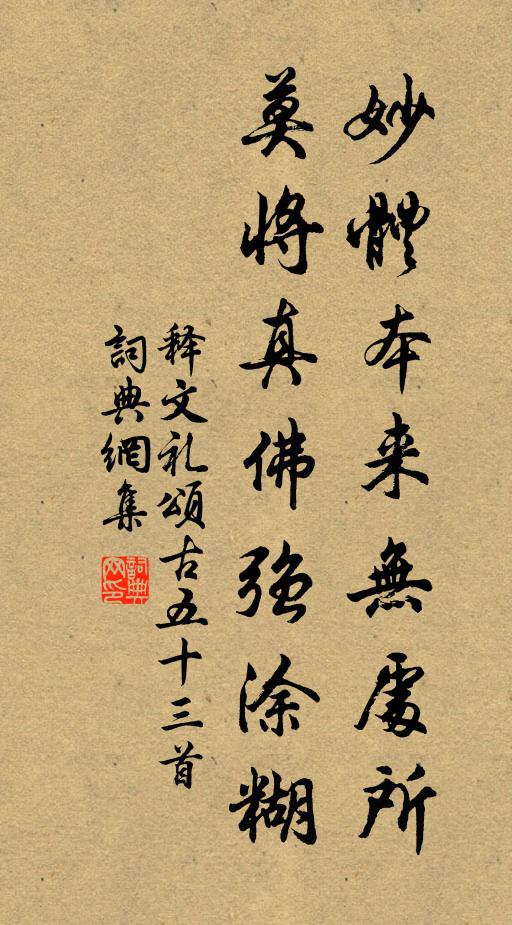 妙體本来無處所
莫將真佛強涂糊
释文礼頌古五十三首
詞典網集
詞典网印